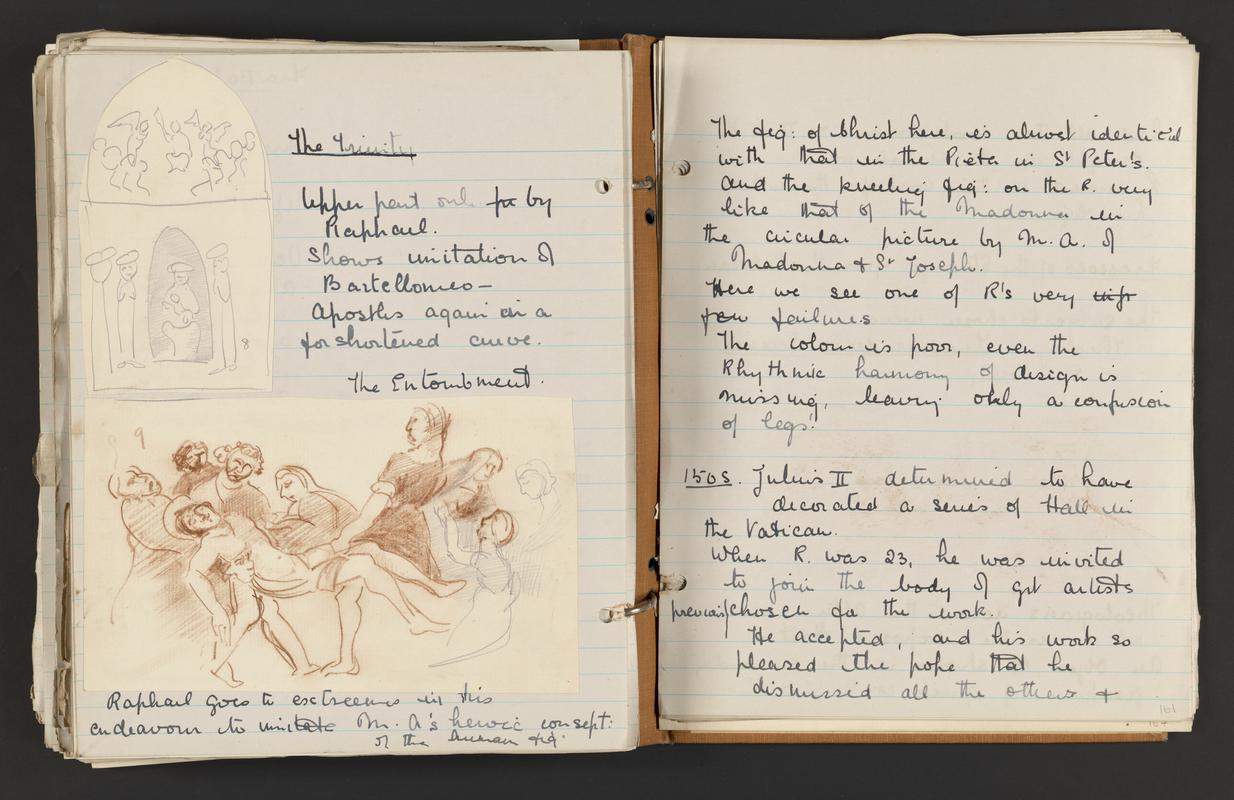 The Trinity
Upper part only by
Raphael.
Shows imitation of
Bartellomeo —
Apostles again in a
forshortened curve.
8
The Entombment.
9
Raphael goes to exstreems in his
endeavour to imitate M. A's heroic consept:
of the human fig:
The fig: of Christ here, is almost identical
with that in the Pièta in St Peter's.
and the kneeling fig: on the R. very
like that of the Madonna in
the circular picture by M. A. of
Madonna & St Joseph.
Here we see one of R's very
few failures
The colour is poor, even the
Rhythmic harmony of design is
missing, leaving only a confusion
of legs!
1508. Julius II determined to have
decorated a series of Halls in
the Vatican.
When R. was 23, he was invited
to join the body of grt artists
previously chosen for the work.
He accepted, and his work so
pleased the pope that he
dismissed all the others +
161